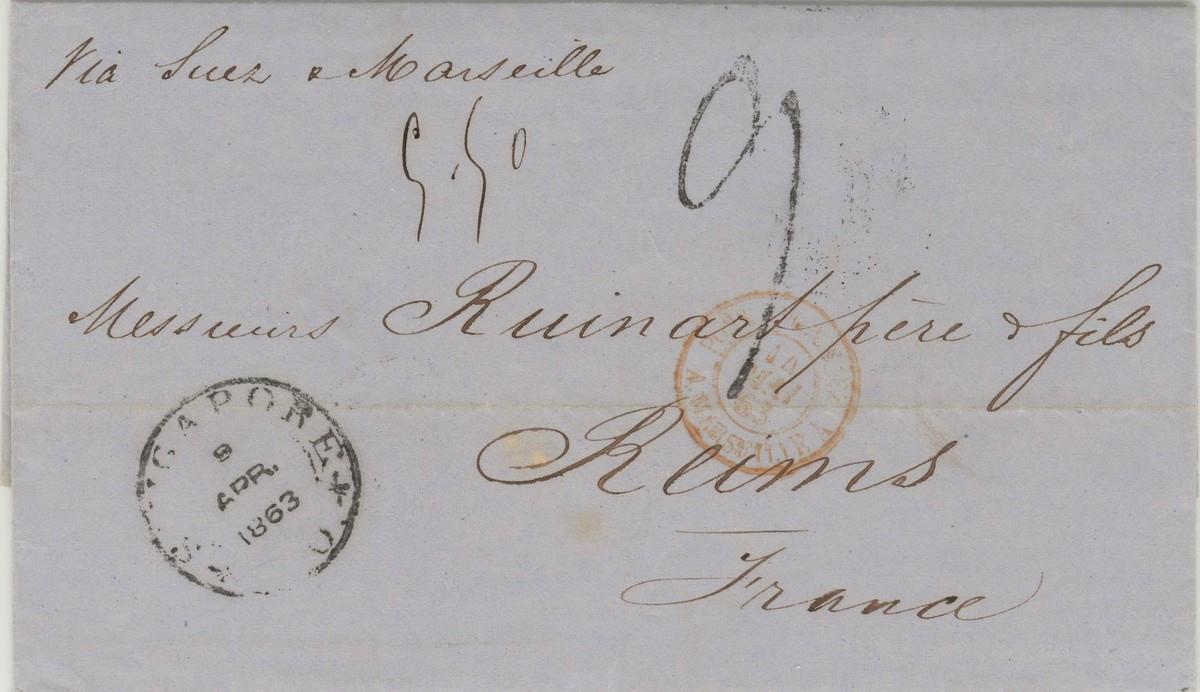 Via Suez & Marseille
9
Messieurs Ruinart père & fils
Reims
France
GAPORE
9
APR.
1863
63
MARSEILLE